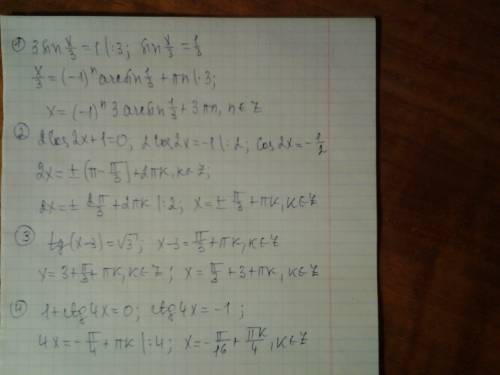 ① 3sin x/3 = 1 |:3; sin x/3 = 1/3
x/3 = (-1)ⁿ arcsin 1/3 + πn |·3;
x = (-1)ⁿ 3 arcsin 1/3 + 3πn, n ∈ Z
② 2cos2x+1=0, 2cos2x=-1 |:2; cos2x=-1/2
2x = ± (π - π/3) + 2πk, k∈Z;
2x = ± 2π/3 + 2πk |:2; x = ± π/3 + πk, k∈Z
③ tg(x-3) = √3; x-3 = π/3 + πk, k∈Z
x = 3 + π/3 + πk, k∈Z; x = π/3 + 3 + πk, k∈Z
④ 1+ctg4x=0; ctg4x = -1;
4x = -π/4 + πk |:4; x = -π/16 + πk/4, k∈Z